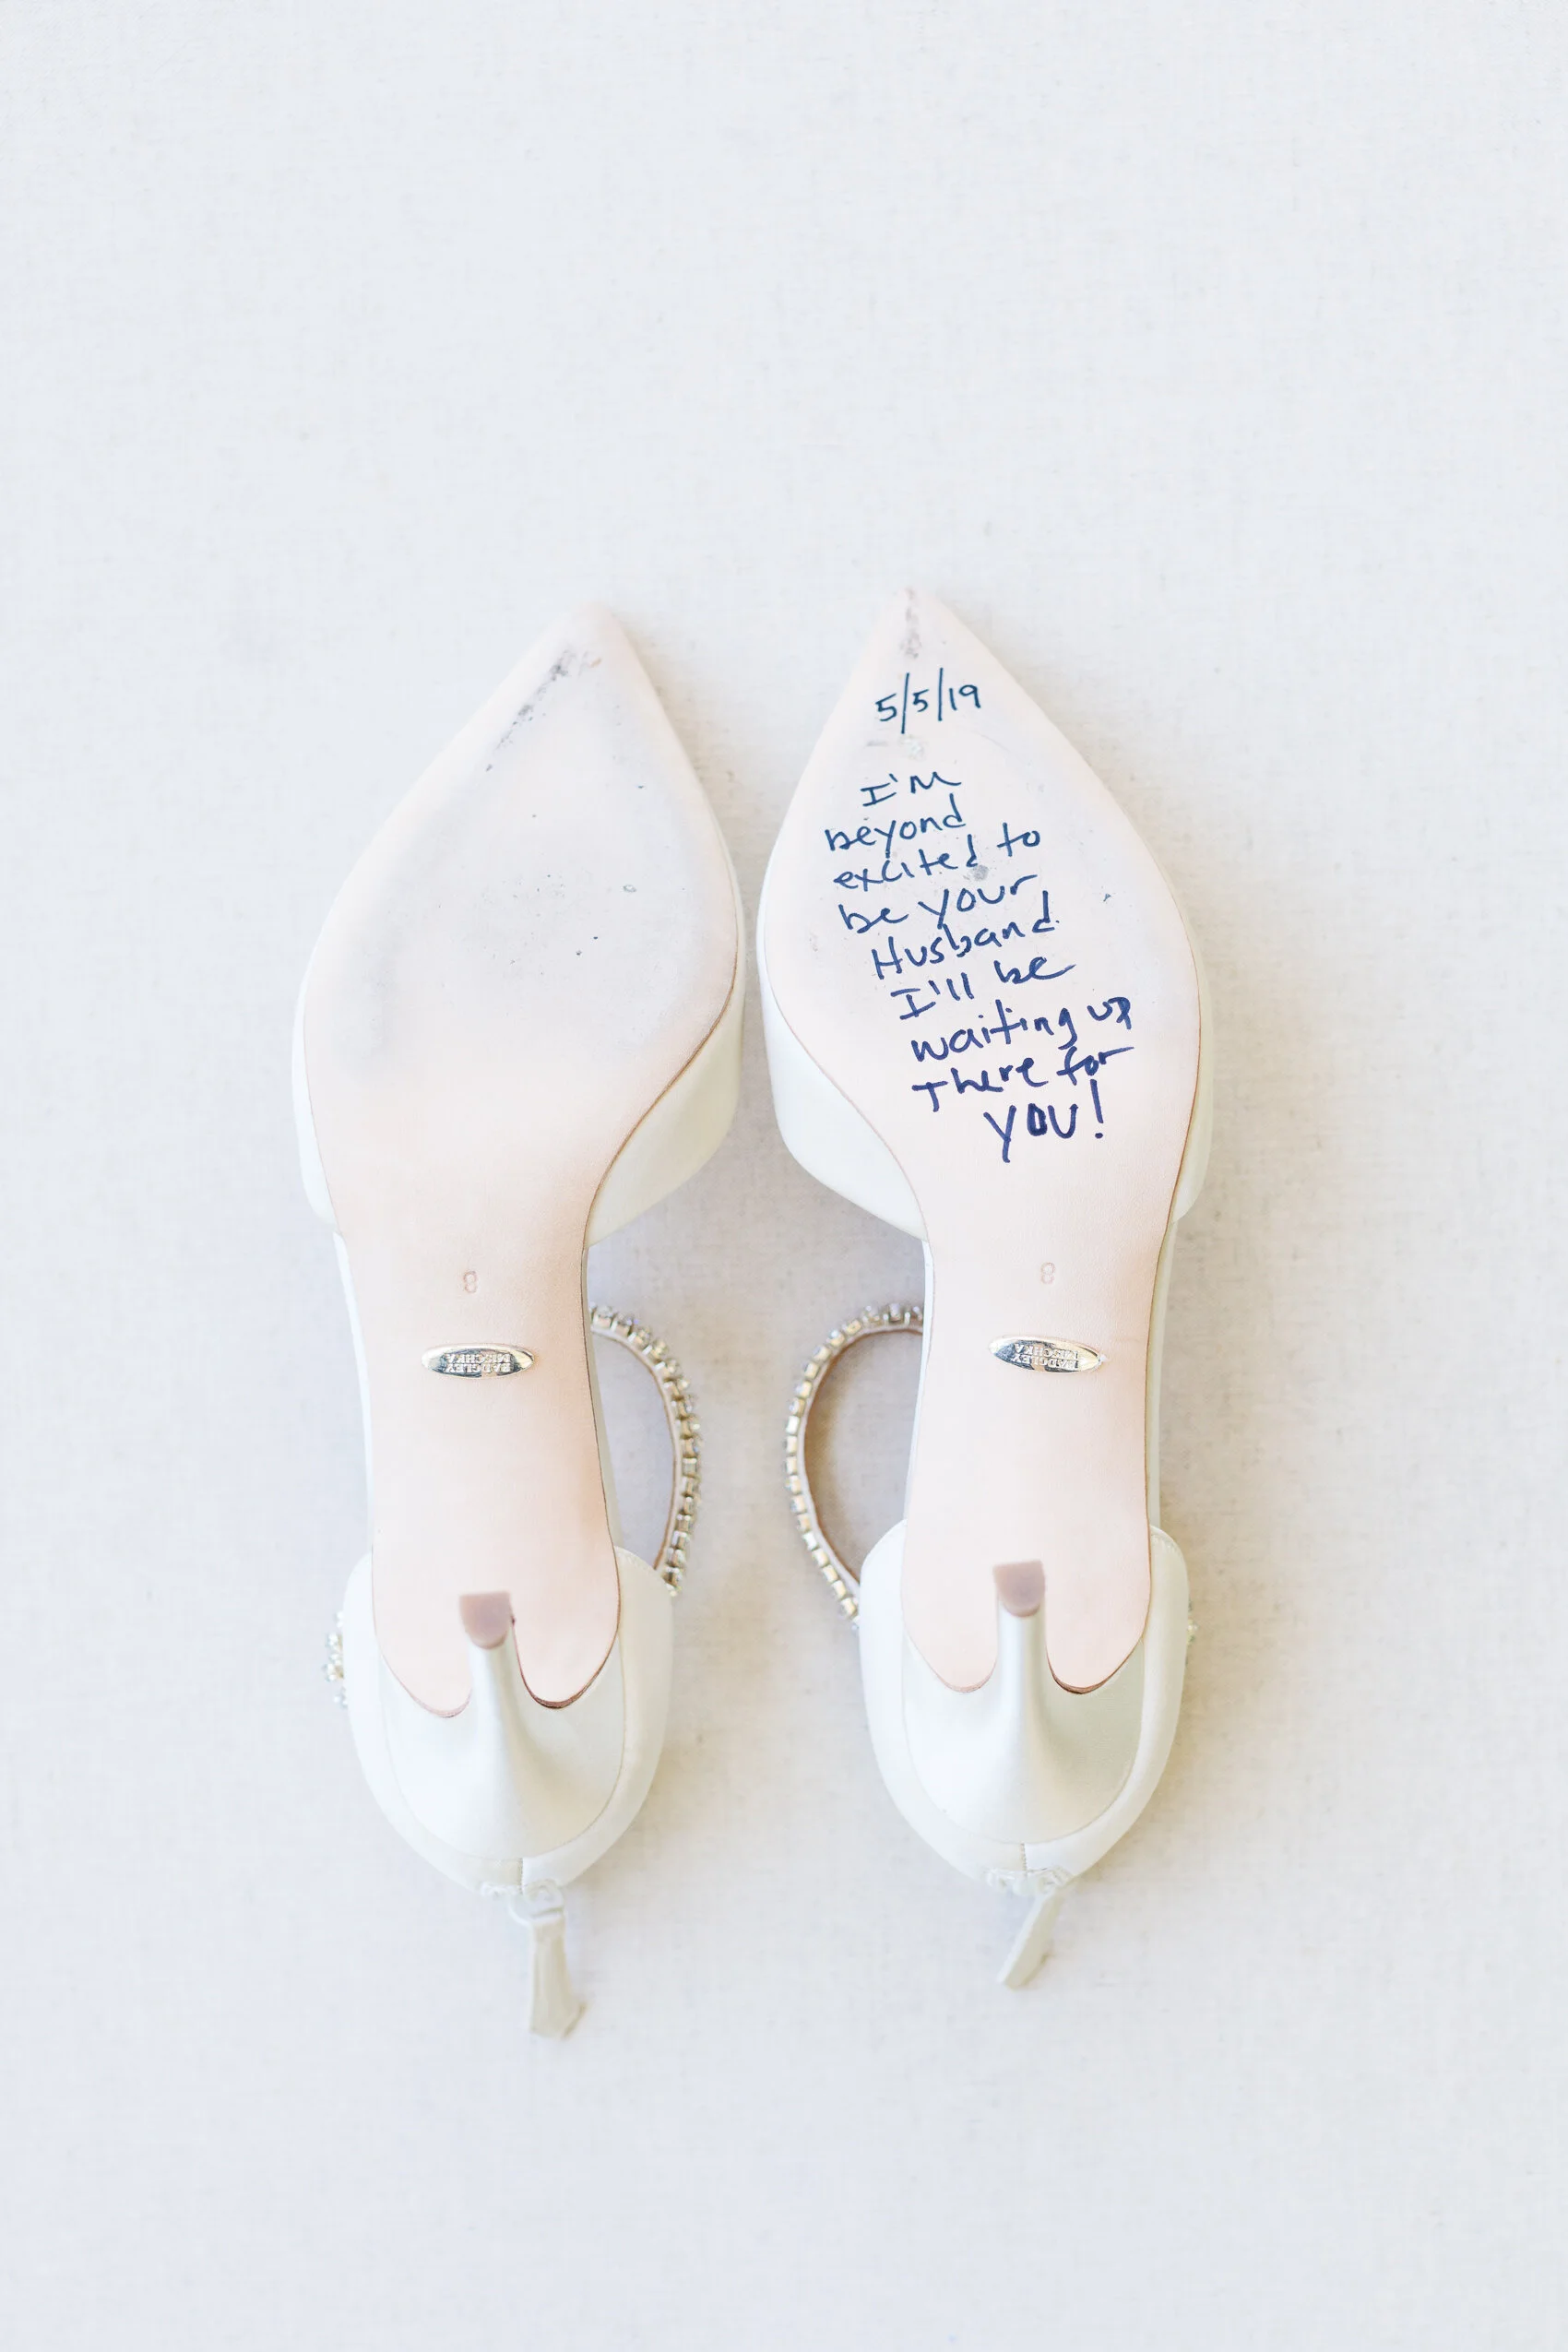 5/5/19
I'm
beyond
excited to
be your
Husband
I'll be
waiting up
There for
YOU!
8
8
BADGLEY
MISCHKA
BADGLEY
MISCHKA